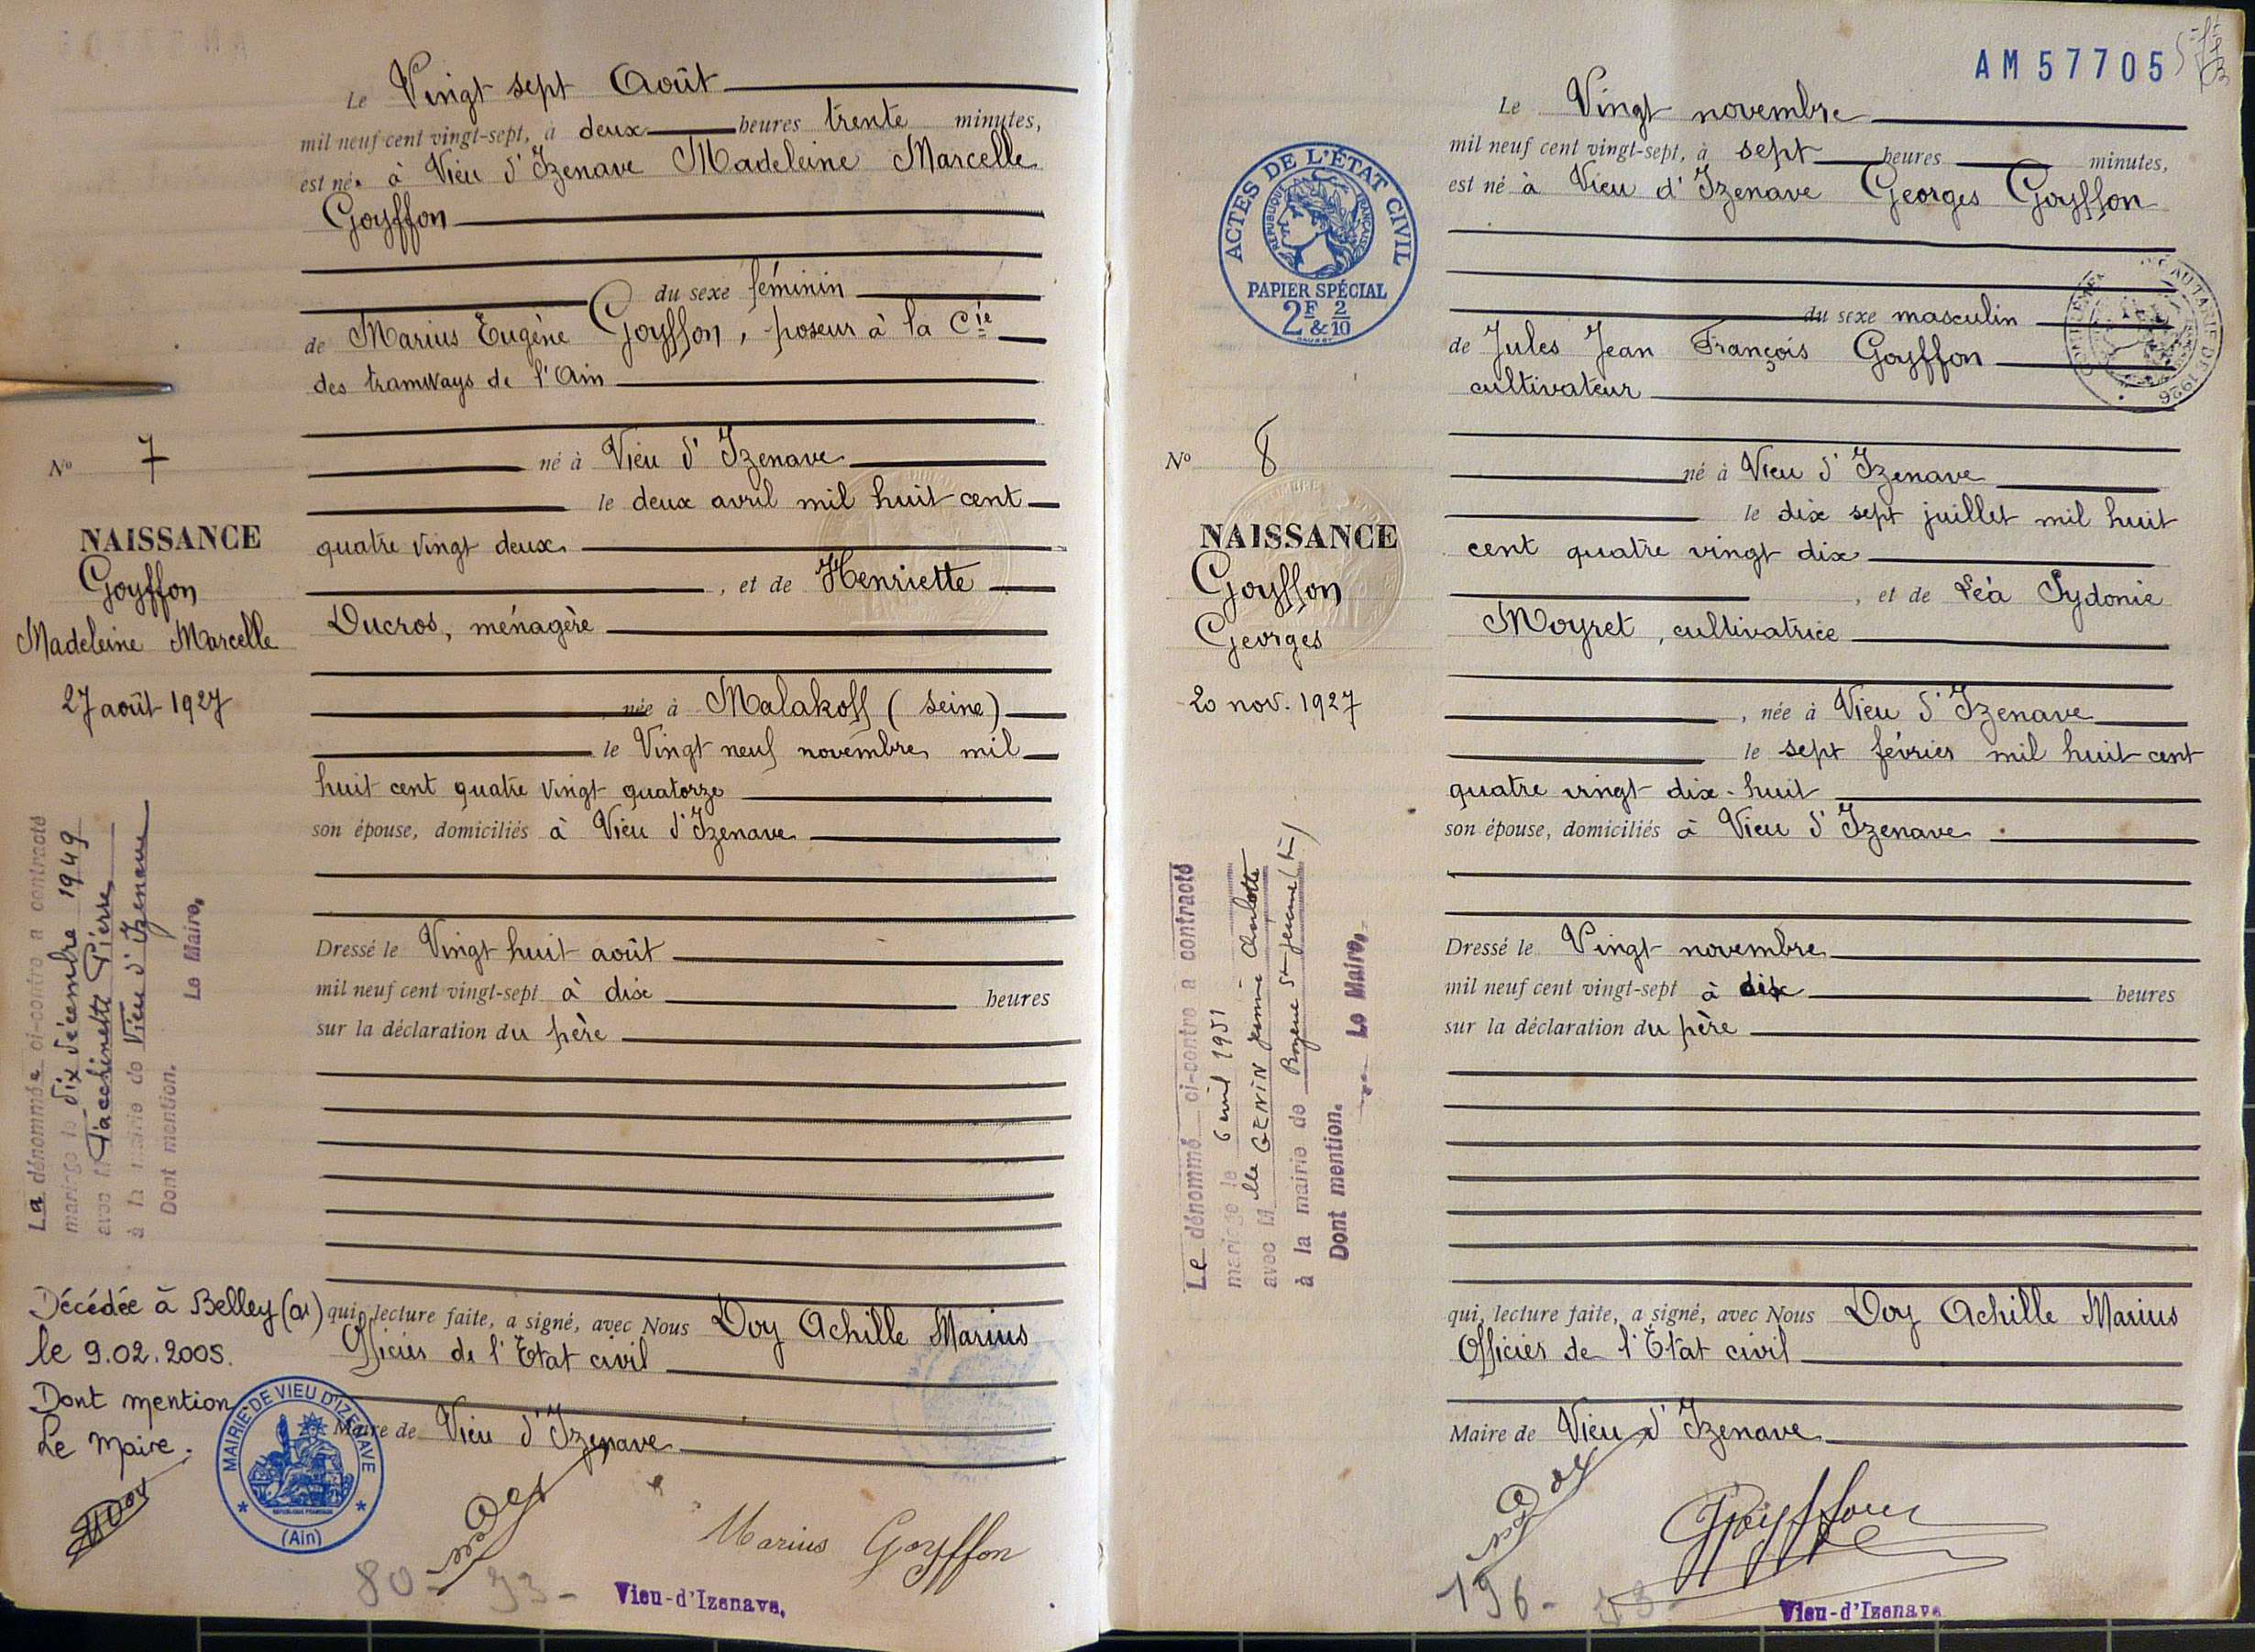 Le Vingt sept Août
mil neuf cent vingt-sept, à deux heures trente minutes,
est née à Vieu d'Izenave Madeleine Marcelle
Goyffon
du sexe féminin
de Marius Eugène Goyffon, poseur à la Cie
des tramways de l'Ain
né à Vieu d'Izenave
le deux avril mil huit cent
quatre vingt deux
, et de Henriette
Ducros, ménagère
née à Malakoff (Seine)
le Vingt neuf novembre mil
huit cent quatre vingt quatorze
son épouse, domiciliés à Vieu d'Izenave
Dressé le Vingt huit août
mil neuf cent vingt-sept à dix heures
sur la déclaration du père
qui, lecture faite, a signé, avec Nous Doy Achille Marius
Officier de l'Etat civil
Maire de Vieu d'Izenave
Marius Goyffon
80 - 93 -
Vieu-d'Izenave,
No 7
NAISSANCE
Goyffon
Madeleine Marcelle
27 août 1927
La dénommée ci-contre a contracté
mariage le dix décembre 1949
avec M Jacchinetti Pierre
à la mairie de Vieu d'Izenave
Dont mention.
Le Maire,
Décédée à Belley (01)
le 9.02.2005.
Dont mention
Le Maire.
MAIRIE DE VIEU D'IZENAVE
RÉPUBLIQUE FRANÇAISE
(Ain)
AM57705
ACTES DE L'ÉTAT CIVIL
RÉPUBLIQUE FRANÇAISE
PAPIER SPÉCIAL
2F & 2/10
Le Vingt novembre
mil neuf cent vingt-sept, à sept heures minutes,
est né à Vieu d'Izenave Georges Goyffon
du sexe masculin
de Jules Jean François Goyffon
cultivateur
né à Vieu d'Izenave
le dix sept juillet mil huit
cent quatre vingt dix
, et de Léa Sydonie
Moyret, cultivatrice
, née à Vieu d'Izenave
le sept février mil huit cent
quatre vingt dix-huit
son épouse, domiciliés à Vieu d'Izenave
Dressé le Vingt novembre
mil neuf cent vingt-sept à dix heures
sur la déclaration du père
qui, lecture faite, a signé, avec Nous Doy Achille Marius
Officier de l'Etat civil
Maire de Vieu d'Izenave
Goyffon
196 -
Vieu-d'Izenave
No 8
NAISSANCE
Goyffon
Georges
20 nov. 1927
Le dénommé ci-contre a contracté
mariage le 6 avril 1951
avec Mlle GENIN Jeanne
à la mairie de
Dont mention.
Le Maire,